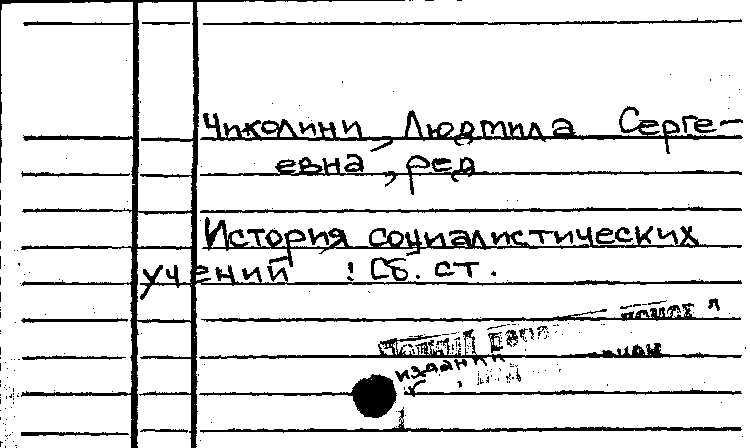 Чиколини, Людмила Серге-
евна, ред.
История социалистических
учений : Сб. ст.
издании